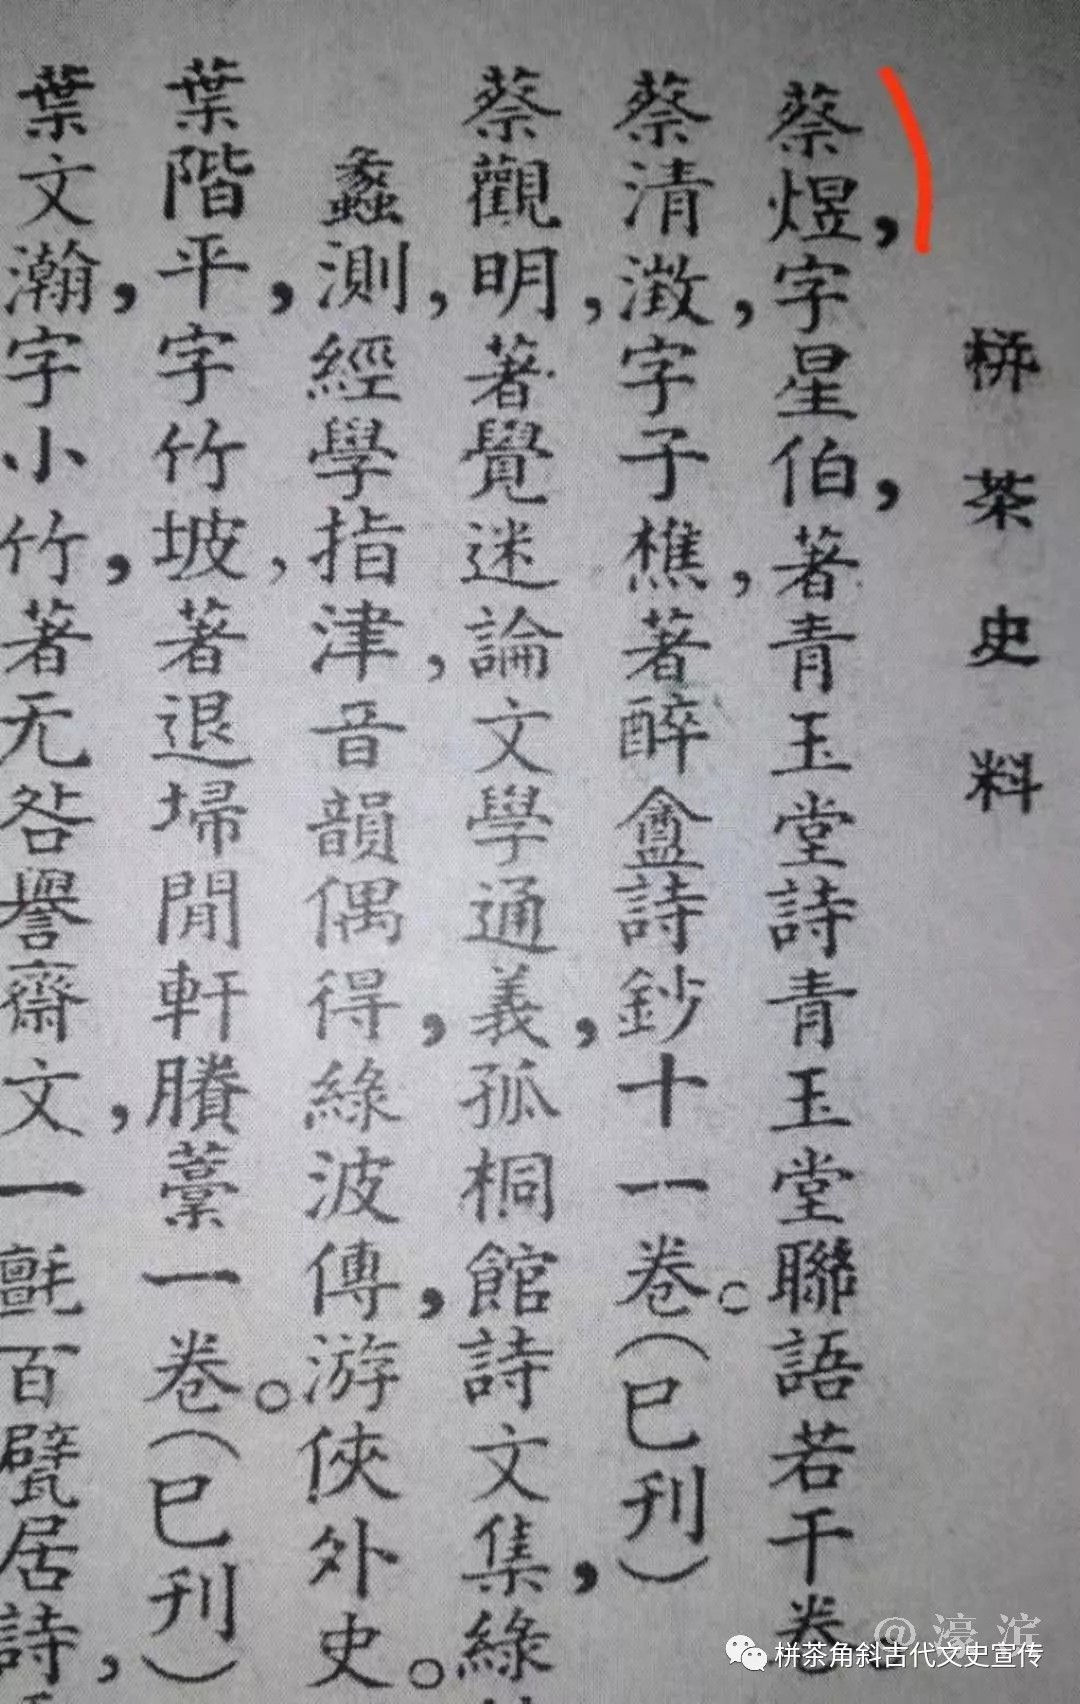 栟茶史料
蔡煜，字星伯，著青玉堂詩青玉堂聯語若干卷。
蔡清澂，字子樵，著醉盦詩鈔十一卷。（已刊）
蔡觀明，著覺迷論文學通義，孤桐館詩文集，綠
蠡測，經學指津，音韻偶得，綠波傳，游俠外史。
葉階平，字竹坡，著退埽閒軒賸藁一卷。（已刊）
葉文瀚，字小竹，著无咎譽齋文，一甎百甓居詩，
@濠滨
栟茶角斜古代文史宣传